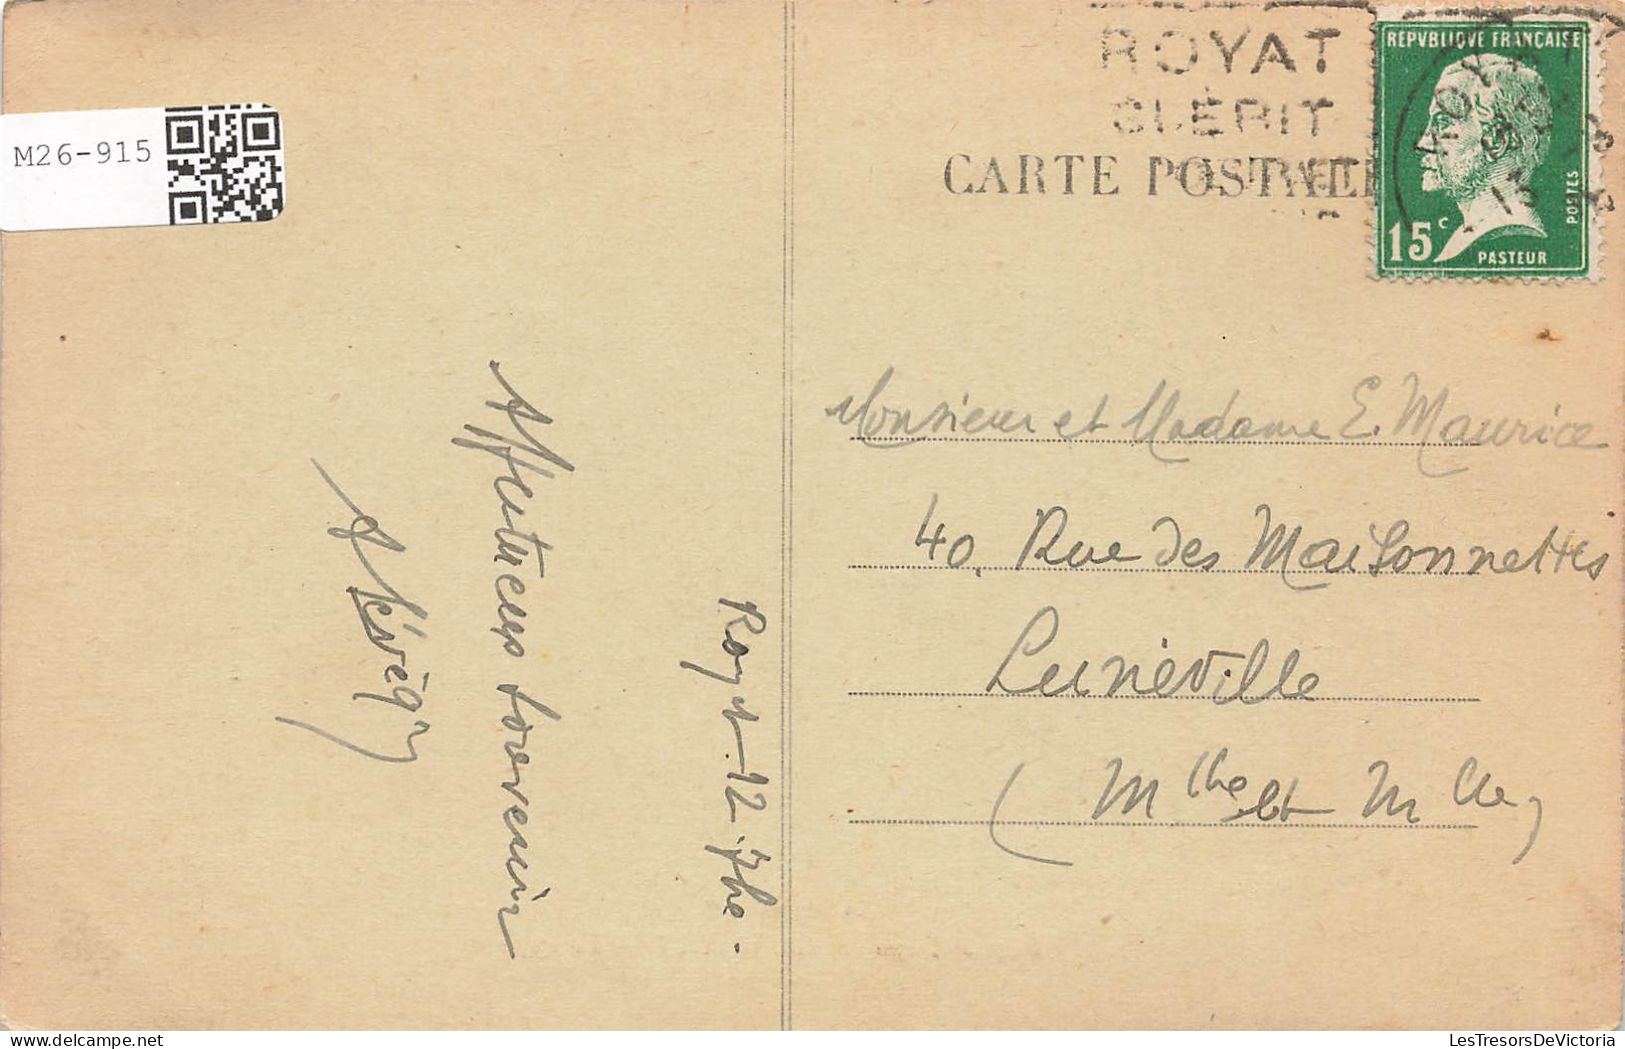 M26-915
ROYAT
GUÉRIT
CARTE POSTALE
REPVBLIQVE FRANÇAISE
15c
PASTEUR
POSTES
Affectueux souvenir
Royat. 12. 7bre.
Monsieur et Madame E. Maurice
40, Rue des Maisonnettes
Lunéville
(Mthe et Mlle)
LesTresorsDeVictoria.com